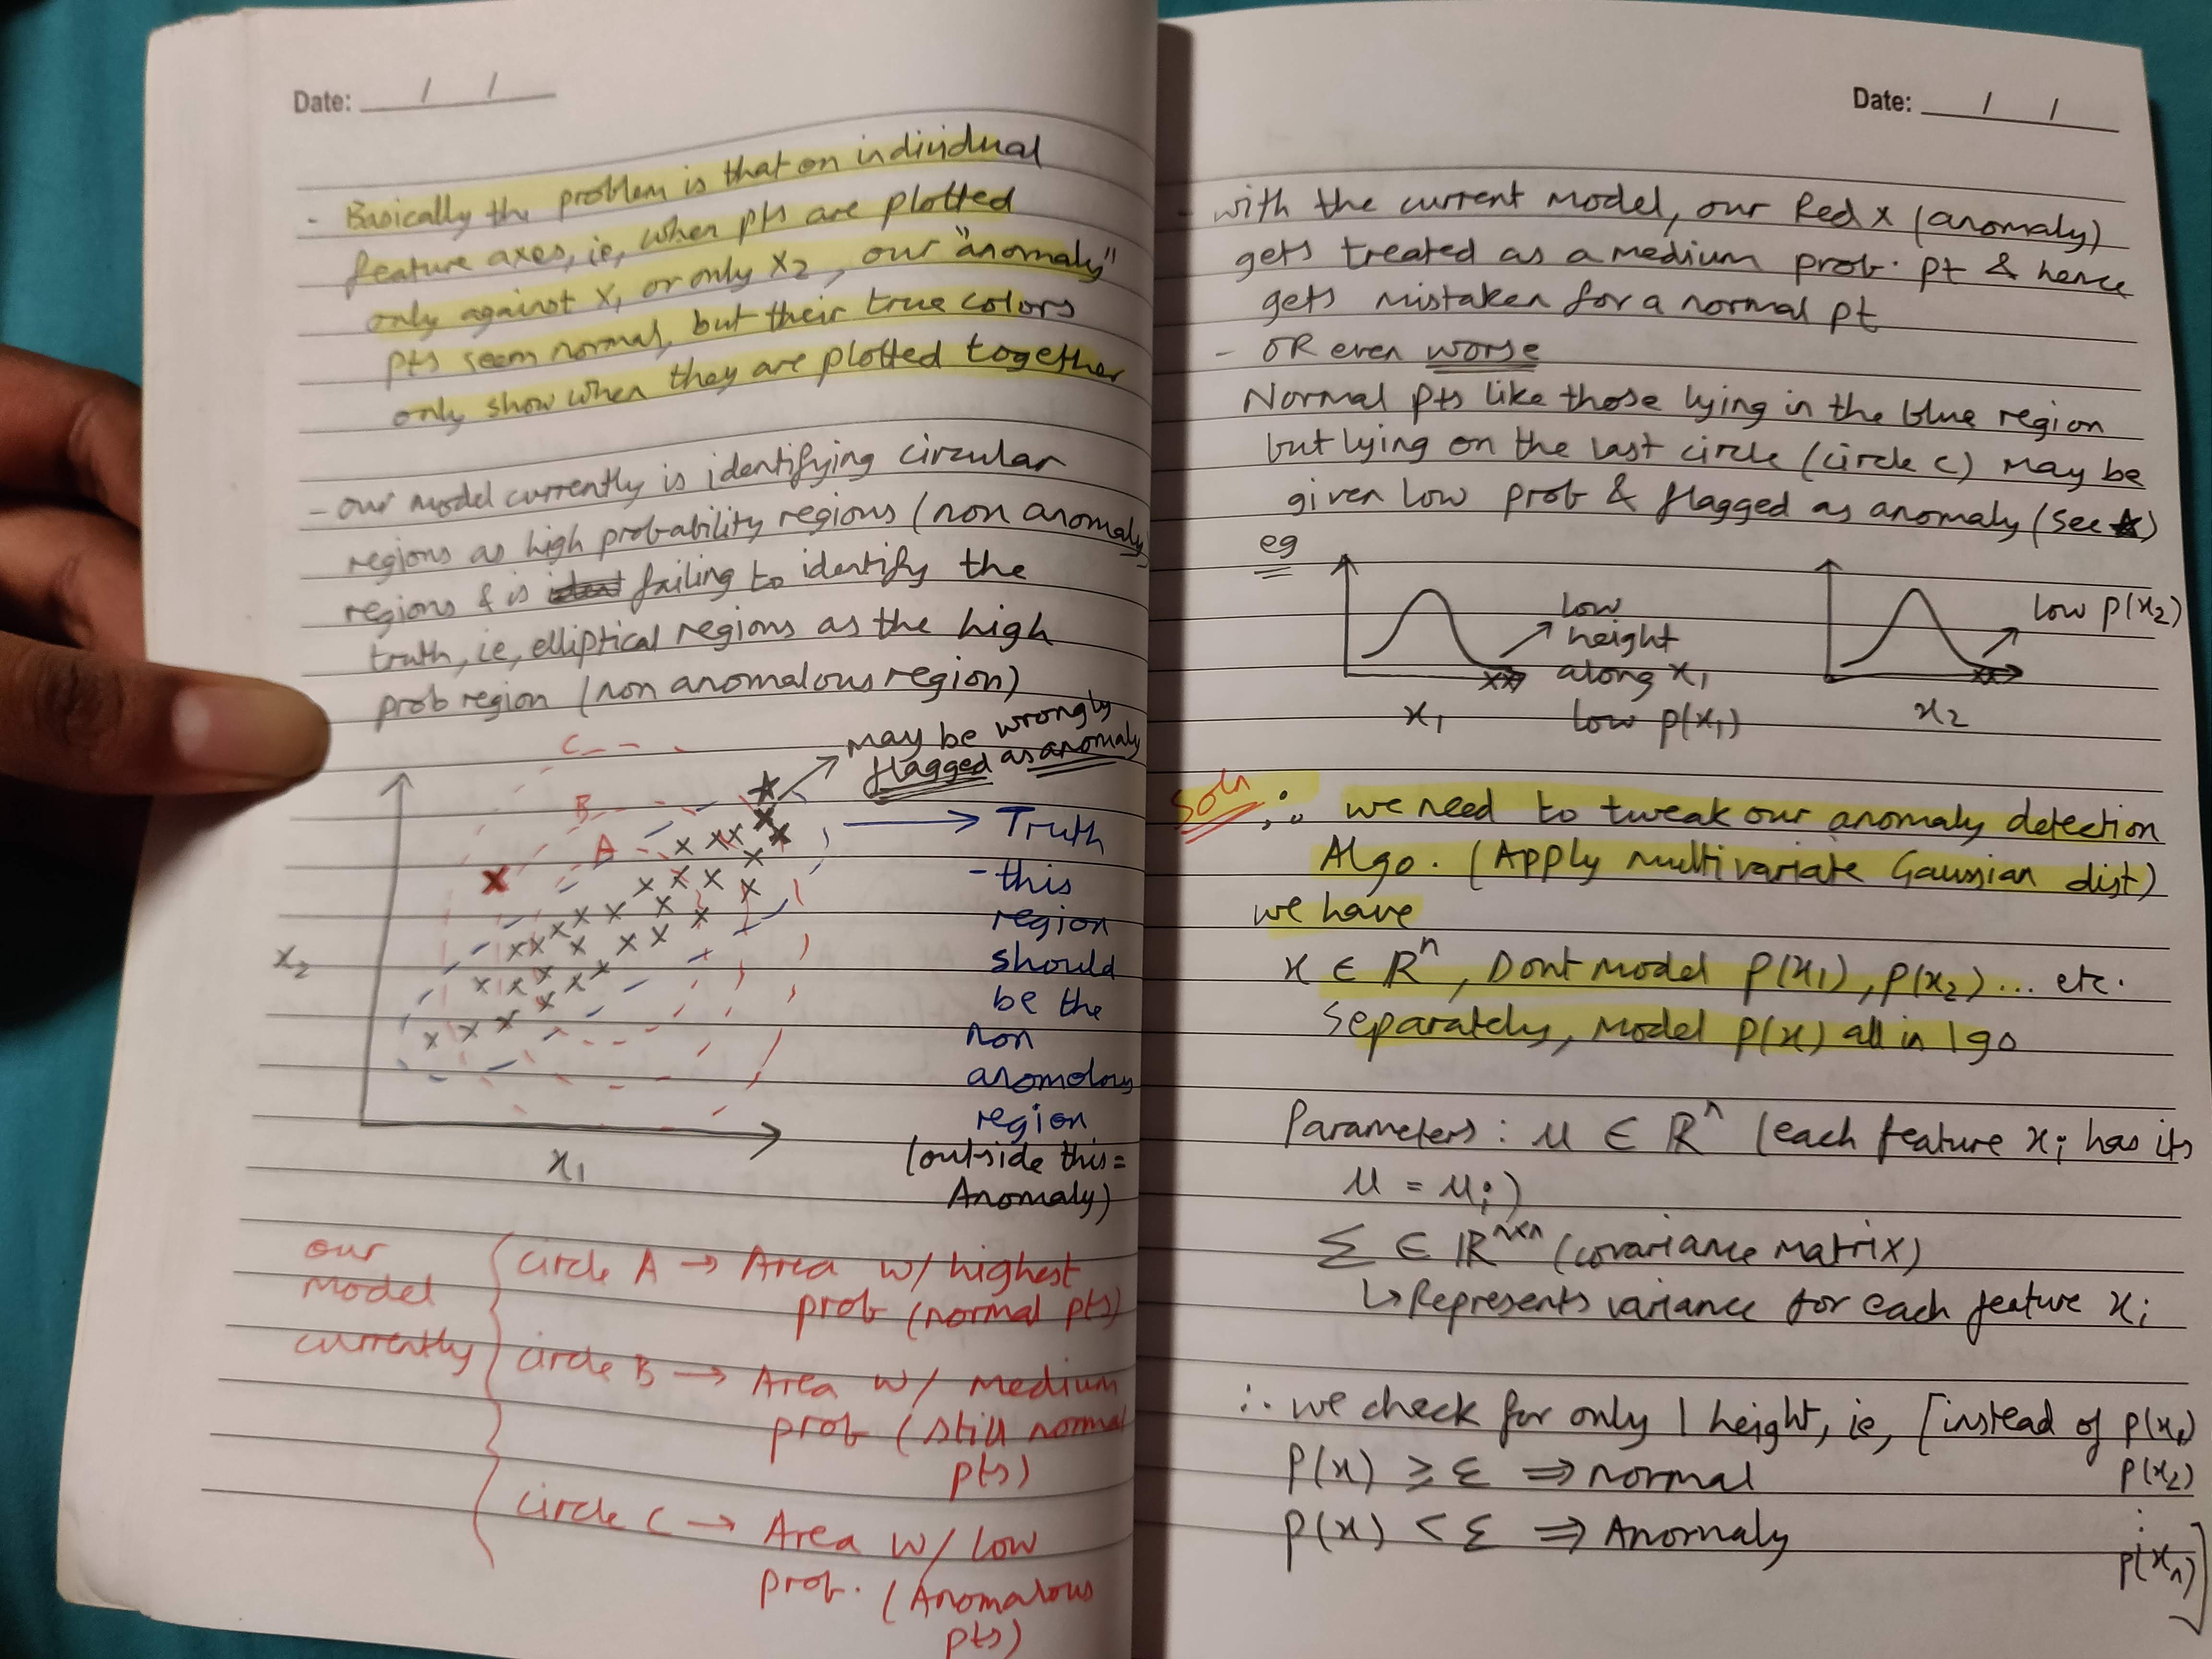 Date: / /
- Basically the problem is that on individual
feature axes, ie, when pts are plotted
only against x₁ or only x₂, our "anomaly"
pts seem normal, but their true colors
only show when they are plotted together
- our model currently is identifying circular
regions as high probability regions (non anomaly
regions & is failing to identify the
truth, ie, elliptical regions as the high
prob region (non anomalous region)
may be wrongly
flagged as anomaly
C
B
A
x₂
x₁
Truth
- this
region
should
be the
non
anomolous
region
(outside this =
Anomaly)
our
model
currently
circle A → Area w/ highest
prob (normal pts)
circle B → Area w/ medium
prob (still normal
pts)
circle C → Area w/ low
prob. (Anomalous
pts)
Date: / /
- with the current model, our Red x (anomaly)
gets treated as a medium prob. pt & hence
gets mistaken for a normal pt
- OR even worse
Normal pts like those lying in the blue region
but lying on the last circle (circle c) may be
given low prob & flagged as anomaly (see ★)
eg
low
height
along x₁
low p(x₁)
x₁
low p(x₂)
x₂
Soln ∴ we need to tweak our anomaly detection
Algo. (Apply multivariate Gaussian dist)
we have
x ∈ ℝⁿ, Dont model p(x₁), p(x₂)... etc.
Separately, Model p(x) all in 1 go
Parameters: μ ∈ ℝⁿ (each feature xᵢ has its
μ = μᵢ)
Σ ∈ ℝⁿˣⁿ (covariance matrix)
↳ Represents variance for each feature xᵢ
∴ we check for only 1 height, ie, [instead of p(x₁)
p(x) ≥ Σ ⇒ normal p(x₂)
p(x) < Σ ⇒ Anomaly ⋮
p(xₙ)]